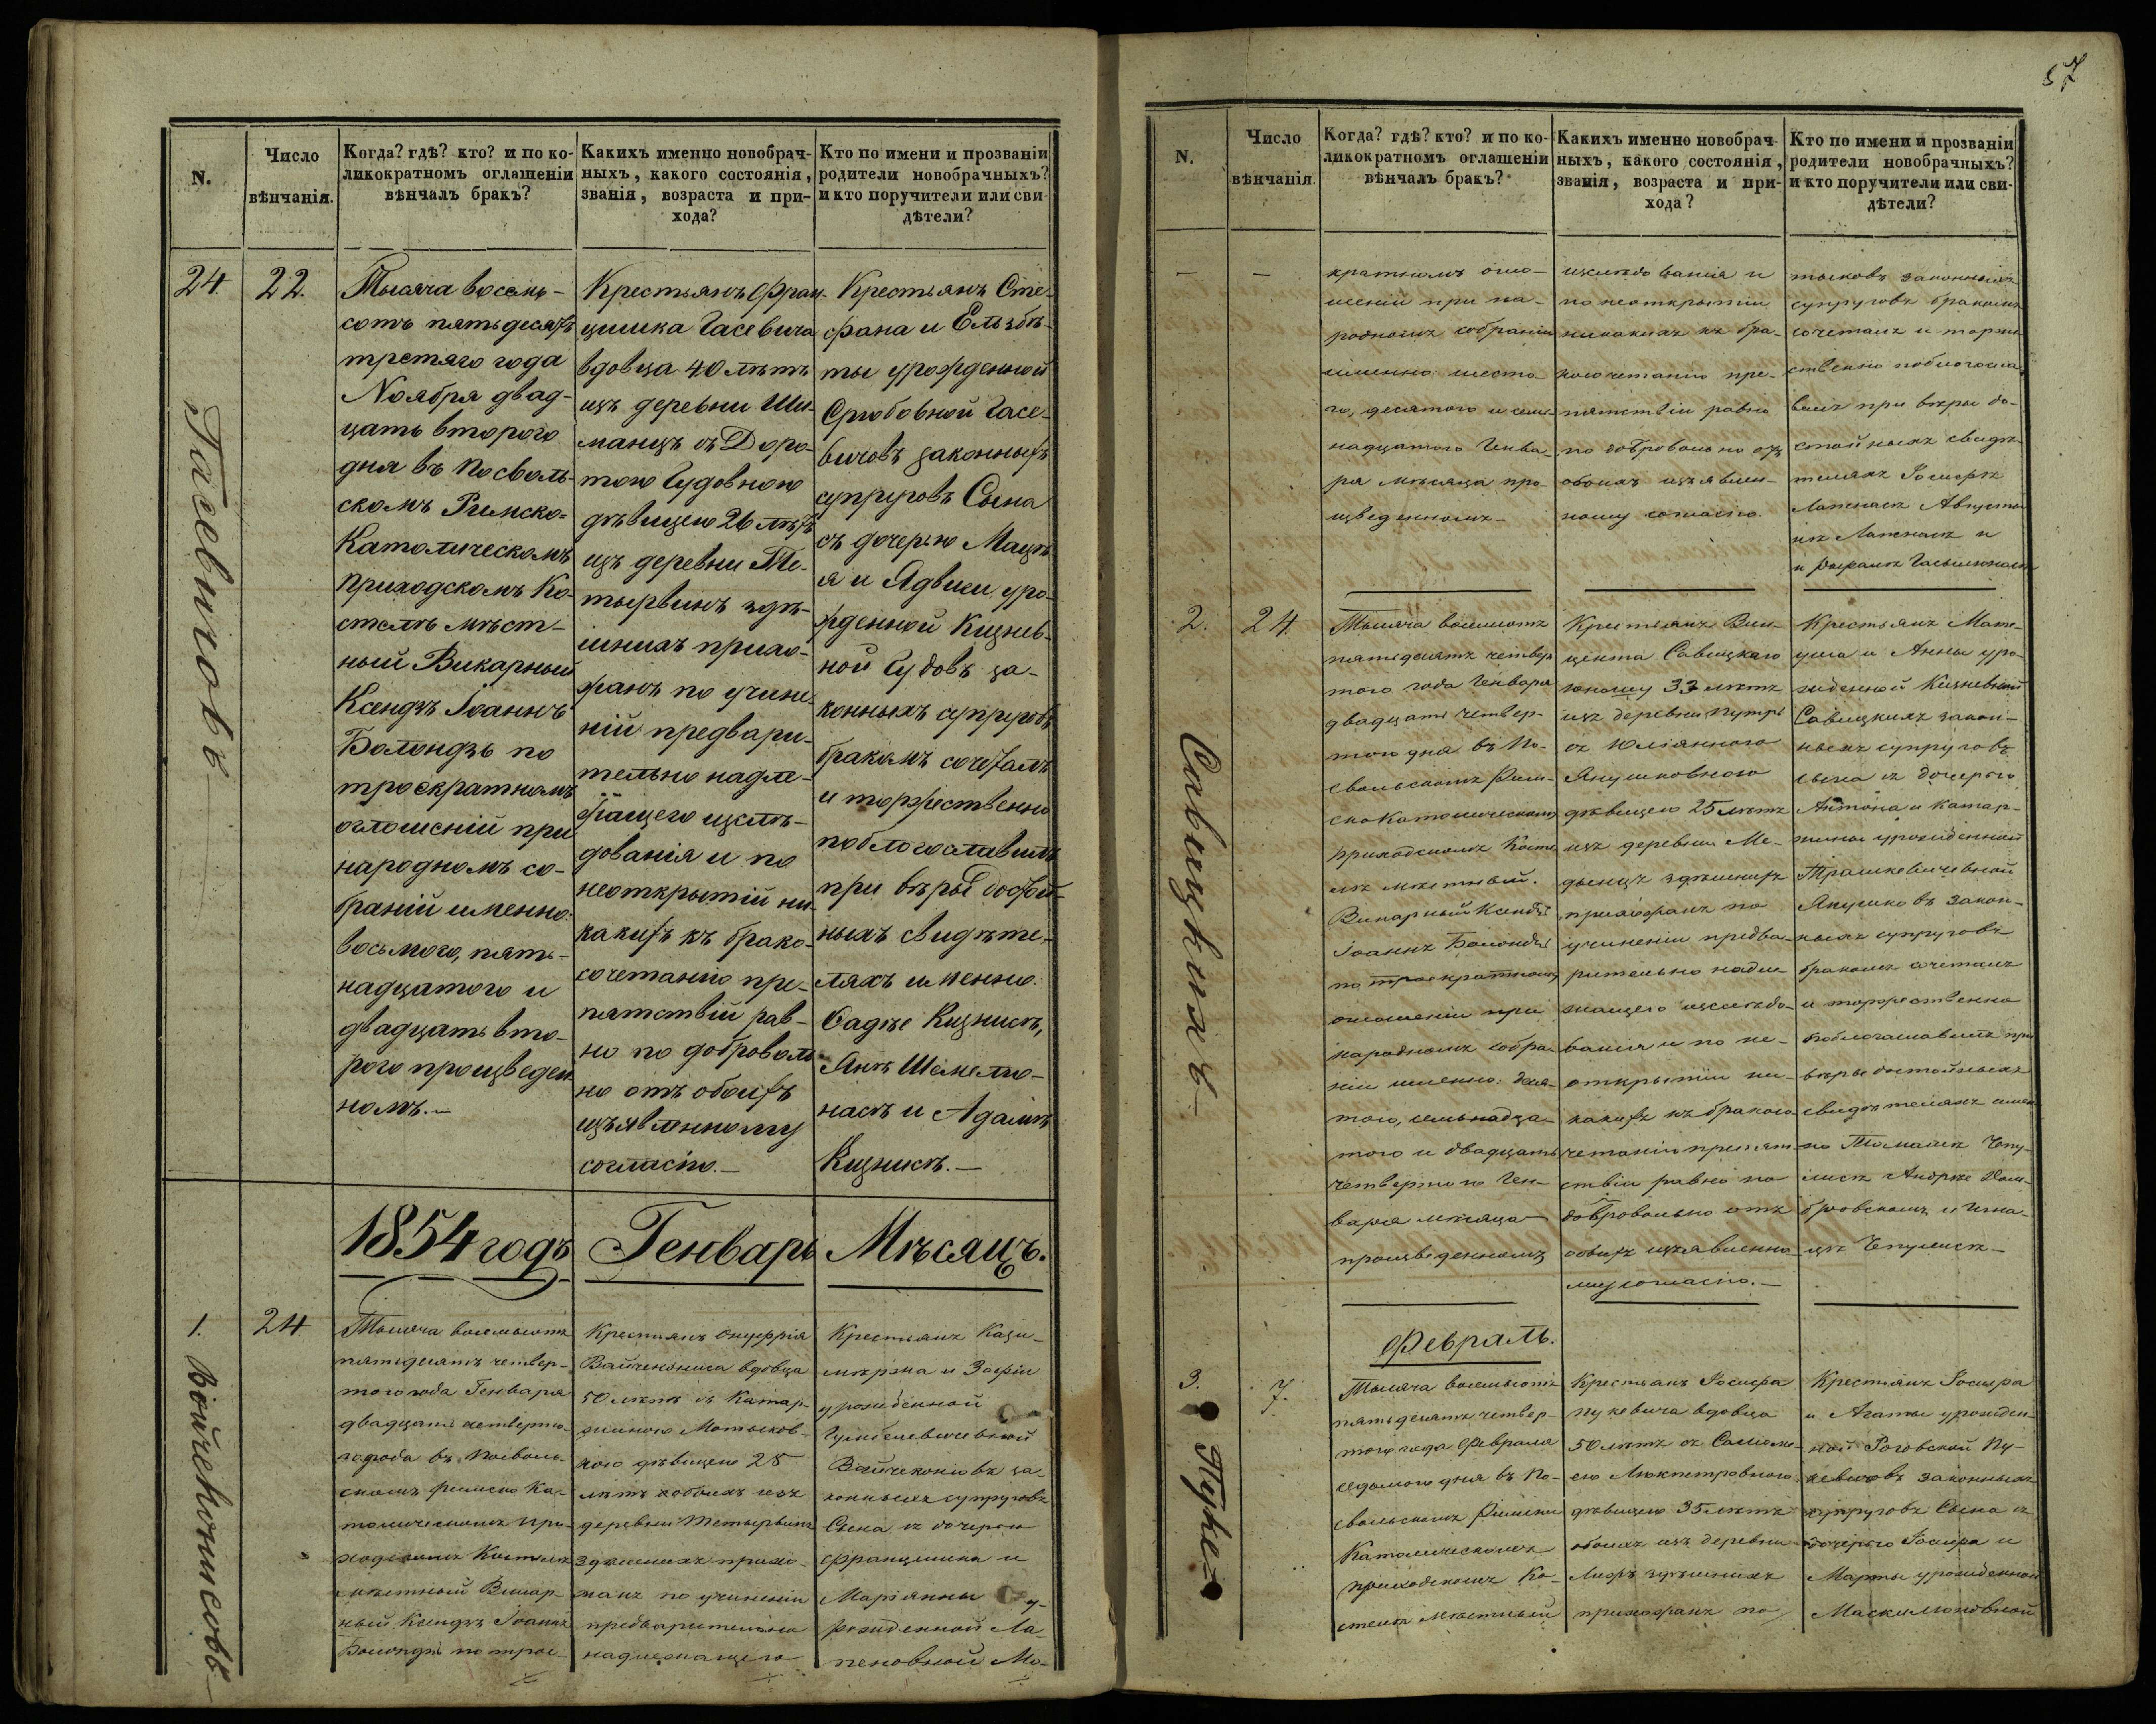 57
N.
Число
вѣнчанія.
Когда? гдѣ? кто? и по ко-
ликократномъ оглашеніи
вѣнчалъ бракъ?
Какихъ именно новобрач-
ныхъ, какого состоянія,
званія, возраста и при-
хода?
Кто по имени и прозваніи
родители новобрачныхъ?
и кто поручители или сви-
дѣтели?
24
Гасевичовъ
22.
Тысяча восемь-
сотъ пятьдесятъ
третяго года
Ноября двад-
цать второго
дня въ Посволь-
скомъ Римско-
Католическомъ
приходскомъ Ко-
стелѣ мѣст-
ный Викарный
Ксендзъ Іоаннъ
Болондзь по
троекратномъ
оглошеній при
народномъ со-
браній именно:
восьмого, пять-
надцатого и
двадцать вто-
рого произведен-
номъ.—
Крестьянъ Фран-
цишка Гасевича
вдовца 40 лѣтъ
изъ деревни Ши-
манцъ съ Доро-
тою Гудовною
дѣвицею 26 лѣтъ
изъ деревни Те-
тырвинъ здѣ-
шнихъ прихо-
жанъ по учине-
ній предвари-
тельно надле-
жащего изслѣ-
дованія и по
неоткрытій ни-
какихъ къ брако-
сочетанію пре-
пятствій рав-
но по доброволь-
но отъ обоихъ
изъявленному
согласію.—
Крестьянъ Сте-
фана и Ельзбѣ-
ты урожденной
Сргобовной Гасе-
вичовъ законныхъ
супруговъ Сына
съ дочерью Мацѣ-
я и Ядвиги уро-
жденной Кизнев-
ной Гудовъ за-
конныхъ супруговъ
бракомъ сочеталъ
и торжественно
поблогославилъ
при вѣры достой-
ныхъ свидѣте-
ляхъ именно:
Фадѣе Кизнисъ,
Янѣ Шемелю-
насъ и Адамѣ
Кизнисъ.—
1854 годъ Генварь Мѣсяцъ.
1.
Войчеконисовъ
24
Тысяча восемьсотъ
пятьдесятъ четвер-
того года Генваря
двадцать четверто-
въ Посволь-
скомъ Римско Ка-
толическомъ при-
ходскомъ Костелѣ
мѣстный Викар-
ный Ксендзъ Іоаннъ
Болондзь по трое-
Крестьянъ Онуфрія
Войчекониса вдовца
50 лѣтъ съ Катар-
жиною Мотыков-
ною дѣвицею 25
лѣтъ обоихъ изъ
деревни Тетырвинъ
здѣшнихъ прихо-
жанъ по учиненіи
предварительно
надлежащего
Крестьянъ Кази-
мѣржа и Зофіи
урожденной
Войчеконювъ за-
конныхъ супруговъ
Сына съ дочерью
Францишка и
Маріянны у-
рожденной Ла-
пеновной Мо-
N.
Число
вѣнчанія.
Когда? гдѣ? кто? и по ко-
ликократномъ оглашеніи
вѣнчалъ бракъ?
Какихъ именно новобрач-
ныхъ, какого состоянія,
званія, возраста и при-
хода?
Кто по имени и прозваніи
родители новобрачныхъ?
и кто поручители или сви-
дѣтели?
—
—
кратномъ огло-
шеніи при на-
родномъ собраніи
именно: шесто-
го, десятого и семь-
надцатого Генва-
ря мѣсяца про-
изведенномъ—
изслѣдованія и
по неоткрытіи
никакихъ къ бра-
косочетанію пре-
пятствіи равно
по добровольно отъ
обоихъ изъявлен-
ному согласію.
тыковъ законныхъ
супруговъ бракомъ
сочеталъ и торже-
ственно поблогосла-
вилъ при вѣры до-
стойныхъ свидѣ-
теляхъ Іосифѣ
Лапенасъ Августы-
нѣ Лапенасъ и
2.
Савицкихъ
24.
Тысяча восемьсотъ
пятьдесятъ четвер-
того года Генваря
двадцать четвер-
того дня въ По-
свольскомъ Рим-
скокатолическомъ
приходскомъ Косте-
лѣ мѣстный
Викарный Ксендзъ
Іоаннъ Болондзь
по троекратномъ
оглошеніи при
народномъ собра-
ніи именно: деся-
того, семьнадца-
того и двадцать
четвертого Ген-
варя мѣсяца
произведенномъ
Крестьянъ Вин-
цента Савицкаго
юношу 33 лѣтъ
изъ деревни
съ Юліянною
Янушковною
дѣвицею 25 лѣтъ
изъ деревни Ме-
здѣшнихъ
прихожанъ по
учиненіи предва-
рительно надле-
жащего изслѣдо-
ванія и по не-
открытіи ни-
какихъ къ бракосо-
четанію препят-
ствіи равно по
добровольно отъ
обоихъ изъявленно-
му согласію.—
Крестьянъ Мате-
уша и Анны уро-
жденной Кизневной
Савицкихъ закон-
ныхъ супруговъ
сына съ дочерью
Антона и Катар-
жины урожденной
Трашкевичевной
Янушковъ закон-
ныхъ супруговъ
бракомъ сочеталъ
и торжественно
поблогославилъ при
вѣры достойныхъ
свидѣтеляхъ имен-
но Томашѣ Чепу-
лисъ Андрѣе Дом-
бровскомъ и Игна-
цѣ Чепулисъ—
Февраль.
3.
Пуке
7.
Тысяча восемьсотъ
пятьдесятъ четвер-
того года Февраля
седьмого дня въ По-
свольскомъ Римско
Католическомъ
приходскомъ Ко-
стелѣ мѣстный
Крестьянъ Іосифа
Пукевича вдовца
50 лѣтъ съ Саломе-
ею
дѣвицею 35 лѣтъ
обоихъ изъ деревни
здѣшнихъ
прихожанъ по
Крестьянъ Іосифа
и Агаты урожден-
ной Роговской Пу-
кевичовъ законныхъ
супруговъ Сына съ
дочерью Іосифа и
Марты урожденной